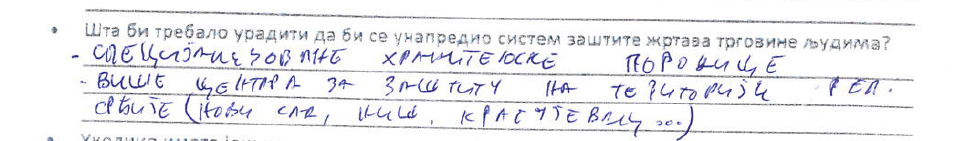 • Шта би требало урадити да би се унапредио систем заштите жртава трговине људима?
- СПЕЦИЈАЛИЗОВАНЕ ХРАНИТЕЉСКЕ ПОРОДИЦЕ
- ВИШЕ ЦЕНТАРА ЗА ЗАШТИТУ НА ТЕРИТОРИЈИ РЕП.
СРБИЈЕ (НОВИ САД, НИШ, КРАГУЈЕВАЦ ...)